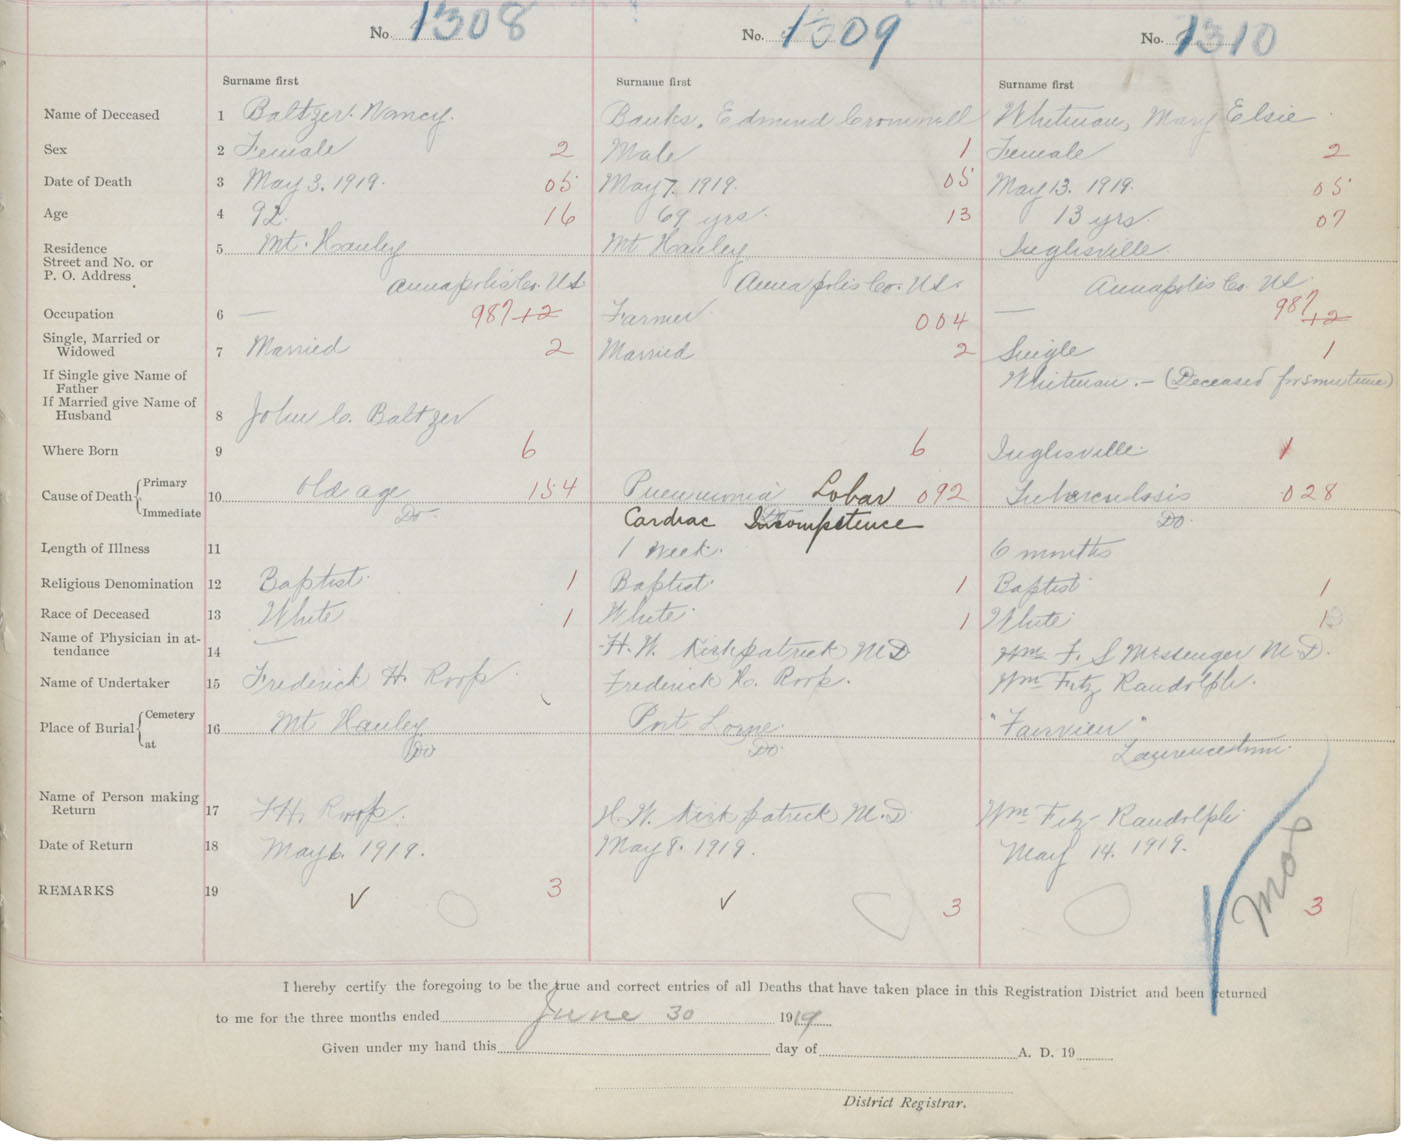 No. 1308 No. 1309 No. 1310
Surname first Surname first Surname first
Name of Deceased 1 Baltzer. Nancy. Banks, Edmund Cromwell Whitman, Mary Elsie
Sex 2 Female 2 Male 1 Female 2
Date of Death 3 May 3. 1919. 05 May 7. 1919. 05 May 13. 1919. 05
Age 4 92. 16 69 yrs. 13 13 yrs. 07
Residence 5 Mt. Hanley Mt Hanley Inglisville
Street and No. or
P. O. Address Annapolis Co. NS Annapolis Co. NS. Annapolis Co. NS
Occupation 6 — 987 +2 Farmer 004 — 987 +2
Single, Married or
Widowed 7 Married 2 Married 2 Single 1
If Single give Name of
Father Whitman. — (Deceased for sometime)
If Married give Name of
Husband 8 John C. Baltzer
Where Born 9 6 6 Inglisville 1
Cause of Death Primary 10 old age 154 Pneumonia Lobar 092 Tuberculosis 028
Immediate Do Cardiac Incompetence Do
Length of Illness 11 1 Week. 6 months
Religious Denomination 12 Baptist 1 Baptist 1 Baptist 1
Race of Deceased 13 White 1 White 1 White 1
Name of Physician in at-
tendance 14 — H. W. Kirkpatrick MD Wm F. S Messenger M.D.
Name of Undertaker 15 Frederick H. Roop Frederick H. Roop. Wm Fitz Randolph.
Place of Burial Cemetery 16 Mt Hanley Port Lorne "Fairview"
at Do Do Lawrencetown.
Name of Person making
Return 17 F H. Roop. H. W. Kirkpatrick M.D Wm Fitz Randolph
Date of Return 18 May 6. 1919. May 8. 1919. May 14. 1919.
REMARKS 19 ✓ 3 ✓ 3 3
I hereby certify the foregoing to be the true and correct entries of all Deaths that have taken place in this Registration District and been returned
to me for the three months ended June 30 1919
Given under my hand this day of A. D. 19
District Registrar.